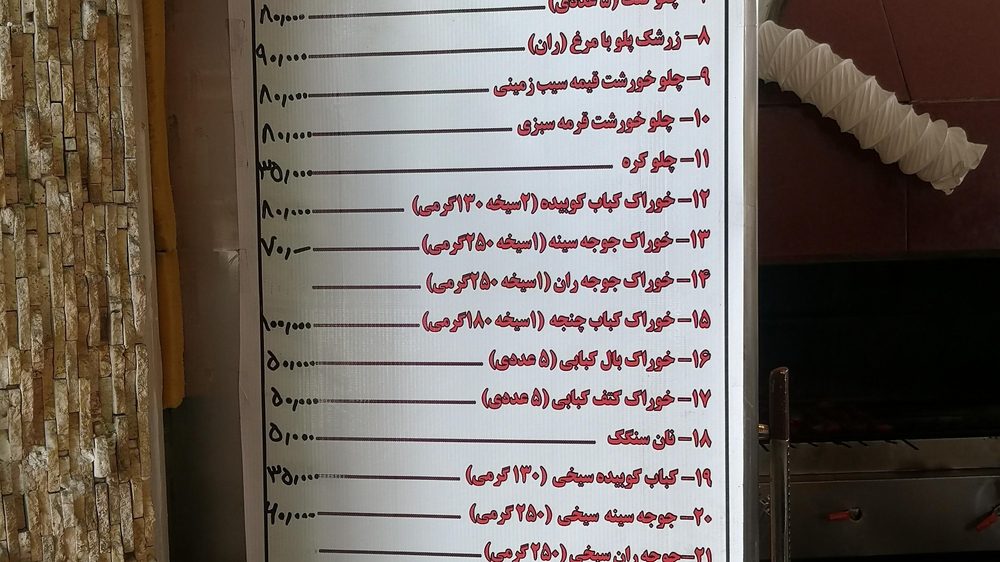 چلو کتف (۵ عددی) ۸۰,۰۰۰
۸- زرشک پلو با مرغ (ران) ۹۰,۰۰۰
۹- چلو خورشت قیمه سیب زمینی ۸۰,۰۰۰
۱۰- چلو خورشت قرمه سبزی ۸۰,۰۰۰
۱۱- چلو کره ۳۵,۰۰۰
۱۲- خوراک کباب کوبیده (۲سیخه ۱۳۰گرمی) ۸۰,۰۰۰
۱۳- خوراک جوجه سینه (۱سیخه ۲۵۰گرمی) ۷۰,۰۰۰
۱۴- خوراک جوجه ران (۱سیخه ۲۵۰گرمی)
۱۵- خوراک کباب چنجه (۱سیخه ۱۸۰گرمی) ۱۰۰,۰۰۰
۱۶- خوراک بال کبابی (۵ عددی) ۵۰,۰۰۰
۱۷- خوراک کتف کبابی (۵ عددی) ۵۰,۰۰۰
۱۸- نان سنگک ۵,۰۰۰
۱۹- کباب کوبیده سیخی (۱۳۰ گرمی) ۳۵,۰۰۰
۲۰- جوجه سینه سیخی (۲۵۰ گرمی) ۶۰,۰۰۰
۲۱- جوجه ران سیخی (۲۵۰ گرمی)